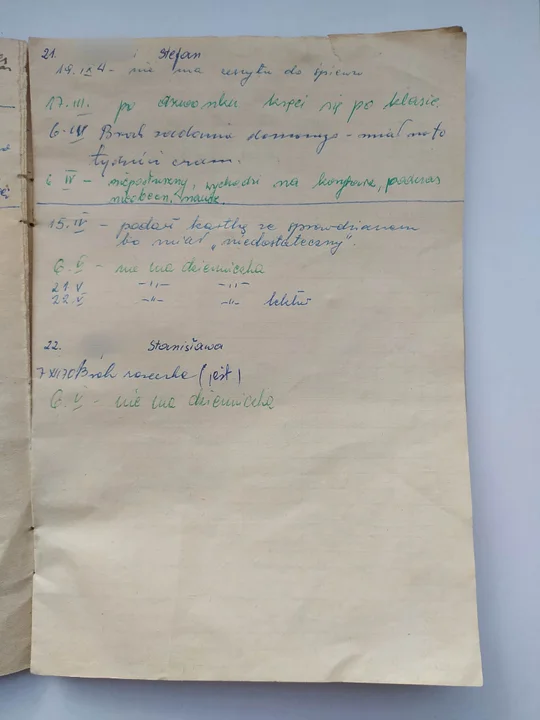 21. Stefan
19. IX - nie ma zeszytu do śpiewu
17. III. po dzwonku kręci się po klasie.
6. IV Brak zadania domowego - miał na to
tydzień czasu.
6 IV - nieposłuszny, wychodzi na korytarz, podczas
nieobecn. naucz.
15. IV - podarł kartkę ze sprawdzianem
bo miał "niedostateczny".
6. V - nie ma dzienniczka
21 V -"- -"-
22. V -"- -"-
22. Stanisława
7 XI 70 Brak (jest)
6. V - nie ma dzienniczka